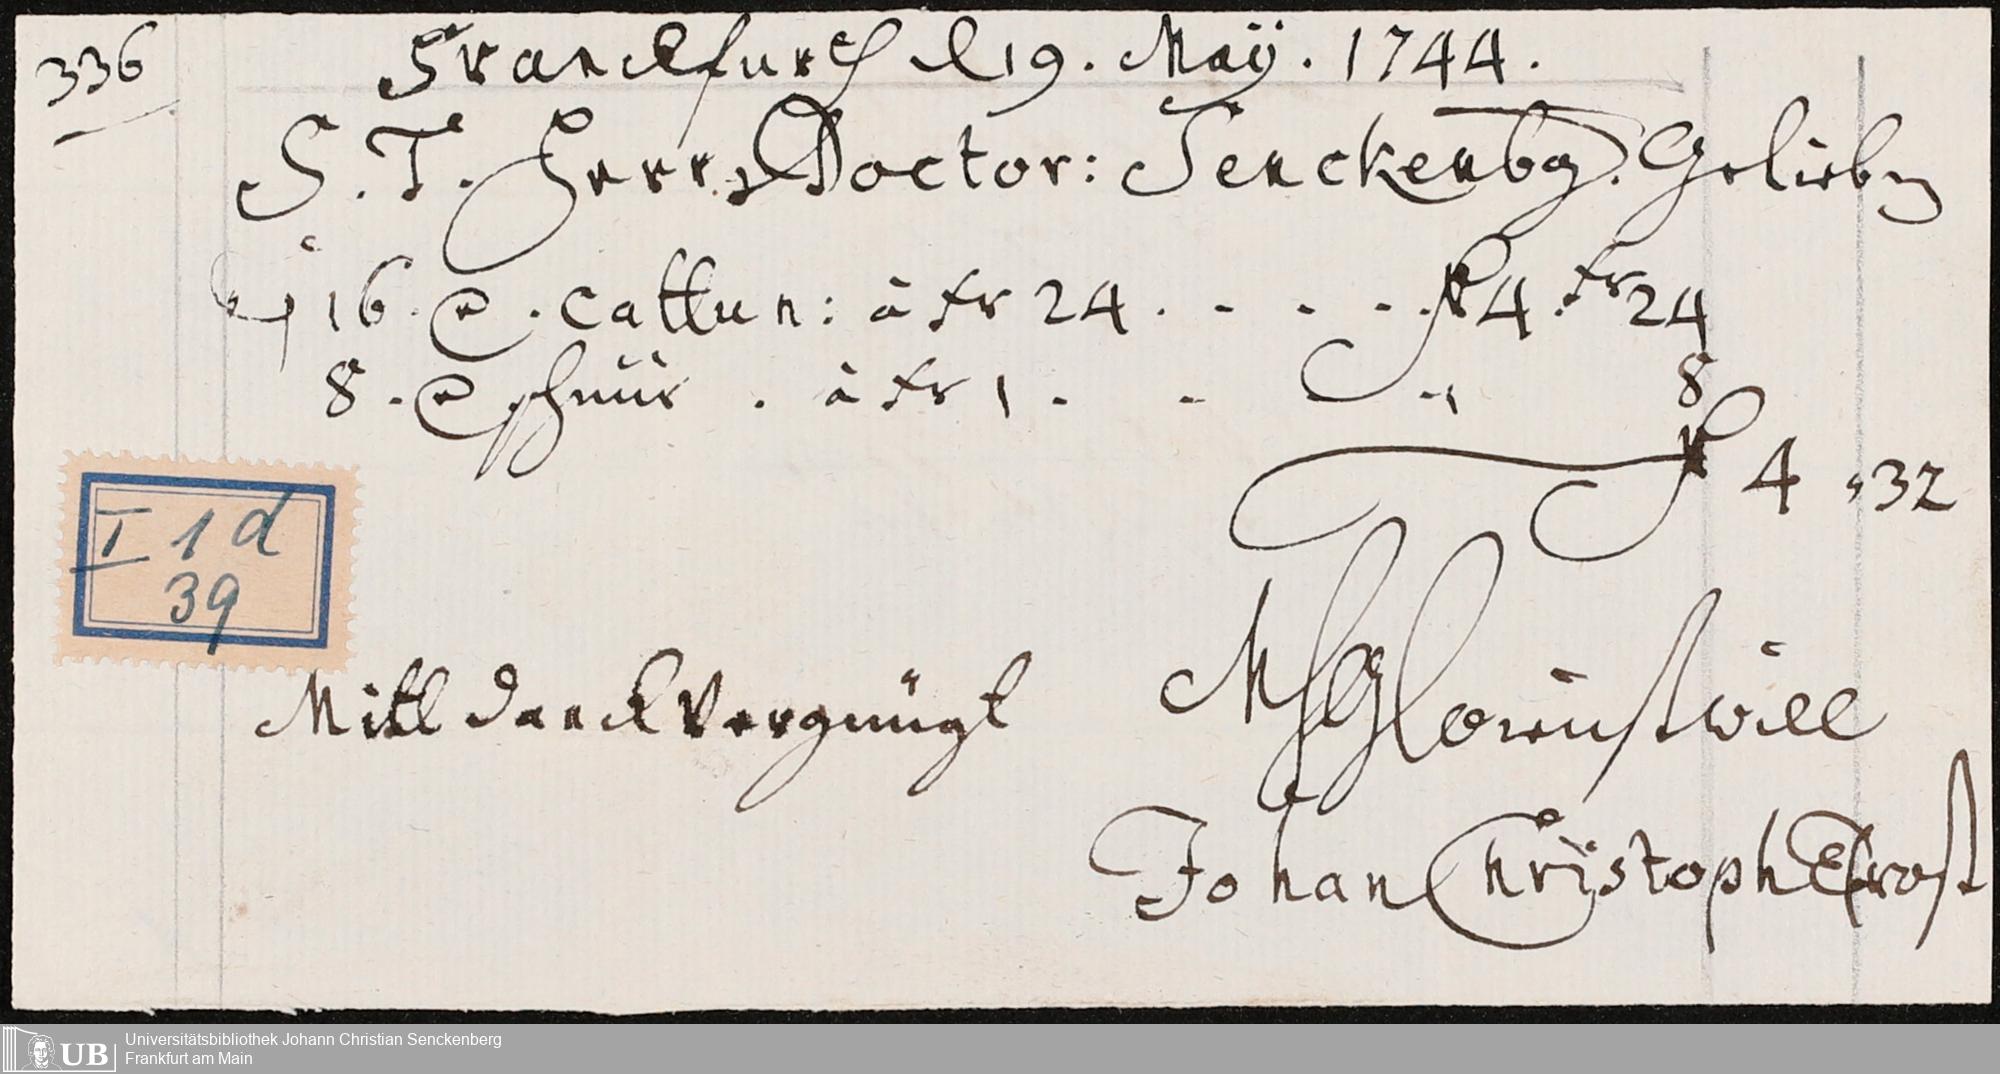 336
Franckfurth d 19. Maÿ. 1744.
S. T. Herr Doctor: Senckenbg. Gelieben
16. e. Cattun: à xr 24 . - - - . f 4 . xr 24
8 - e schnür . à xr 1 . - - 8
f 4 , 32
I 1 d
39
Mitt danck Vergnügt
Johan Christoph
Universitätsbibliothek Johann Christian Senckenberg
UB Frankfurt am Main